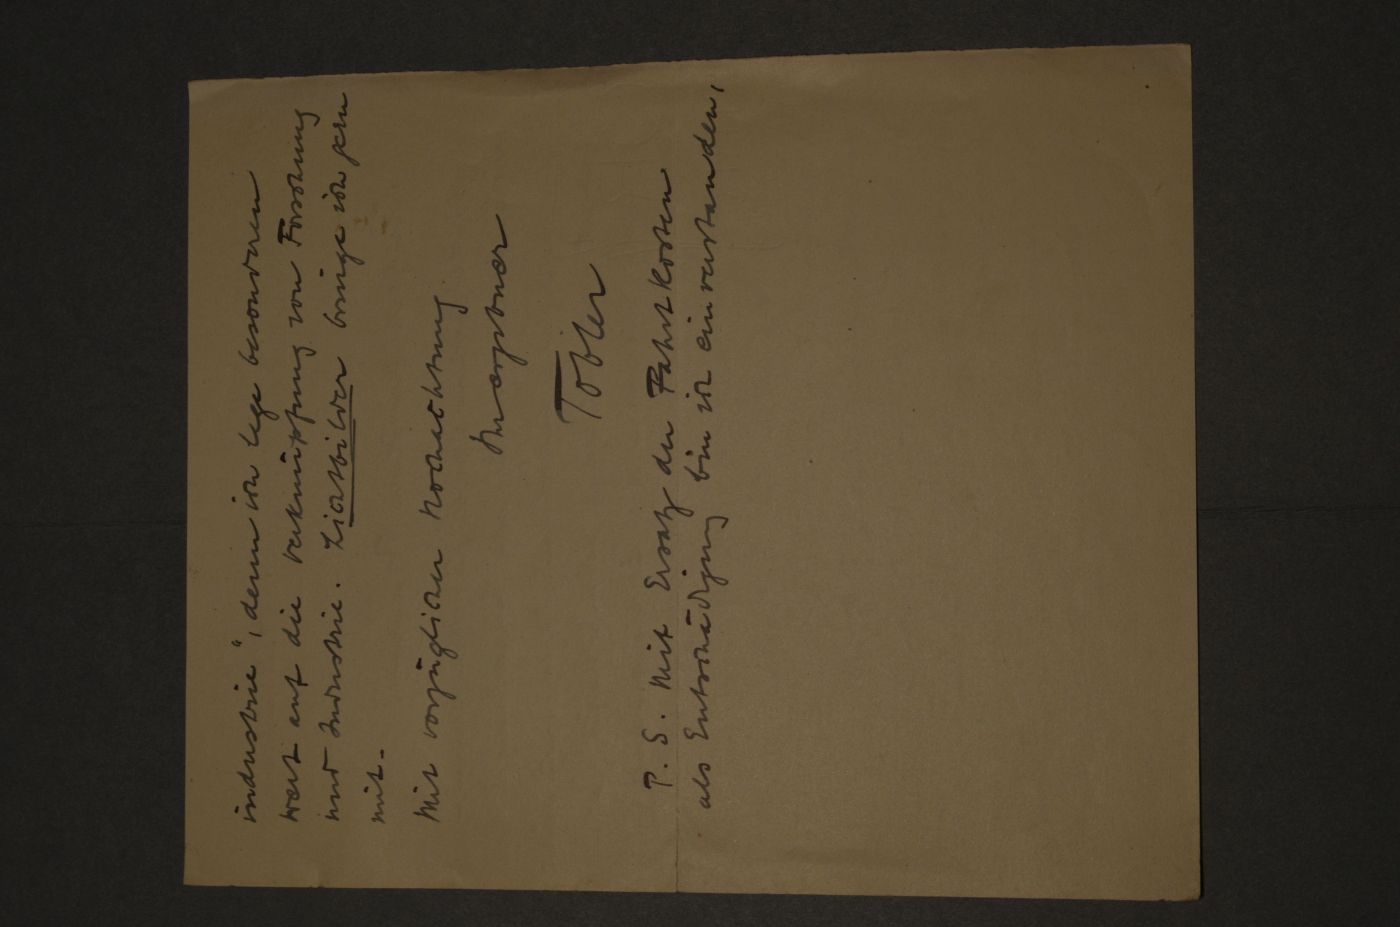 industrie", denn ich lege besonderen
Wert auf die Verknüpfung von Forschung
und Industrie. Lichtbilder bringe ich gern
mit.
Mit vorzüglicher Hochachtung
Ihr ergebener
Tobler
P. S. Mit Ersatz der Fahrtkosten
als Entschädigung bin ich einverstanden,